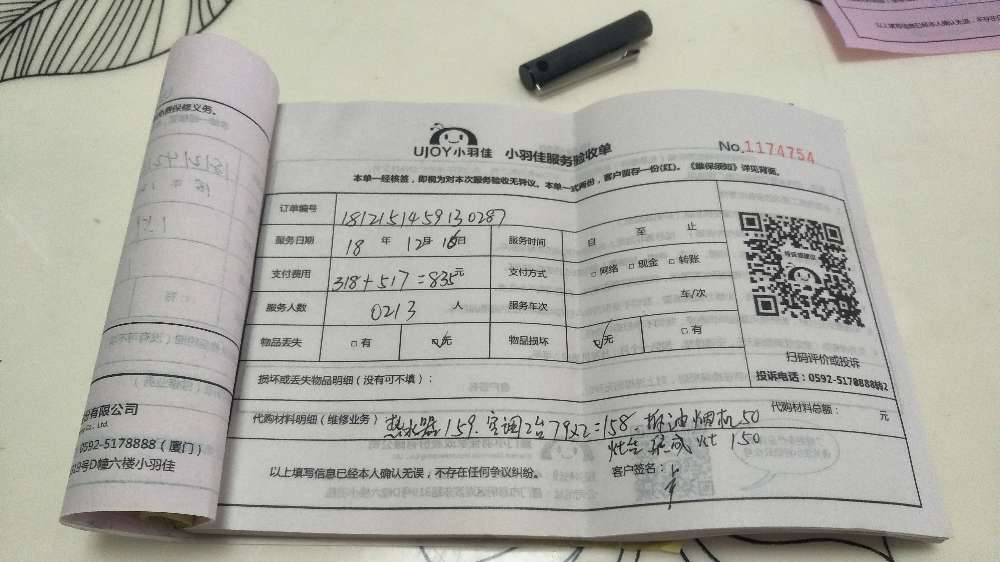 以上填写信息已经本人确认无误，不存在
免费保修义务。
UJOY小羽佳 小羽佳服务验收单
No.1174754
本单一经核签，即视为对本次服务验收无异议。本单一式两份，客户留存一份(红)。《维保须知》详见背面。
订单编号 1812151459130287
服务日期 18 年 12月 16日 服务时间 自 至 止
支付费用 318+517=835元 支付方式 □网络 □现金 □转账
服务人数 0213 人 服务车次 车/次
物品丢失 □有 ☑无 物品损坏 ☑无 □有
扫码评价或投诉
投诉电话：0592-5178888转2
损坏或丢失物品明细（没有可不填）：
代购材料明细（维修业务） 热水器159.空调2台79×2=158.拆油烟机50
灶台 灶 150
代购材料总额： 元
以上填写信息已经本人确认无误，不存在任何争议纠纷。
客户签名：
份有限公司
Co., Ltd.
0592-5178888（厦门）
319号D幢六楼小羽佳